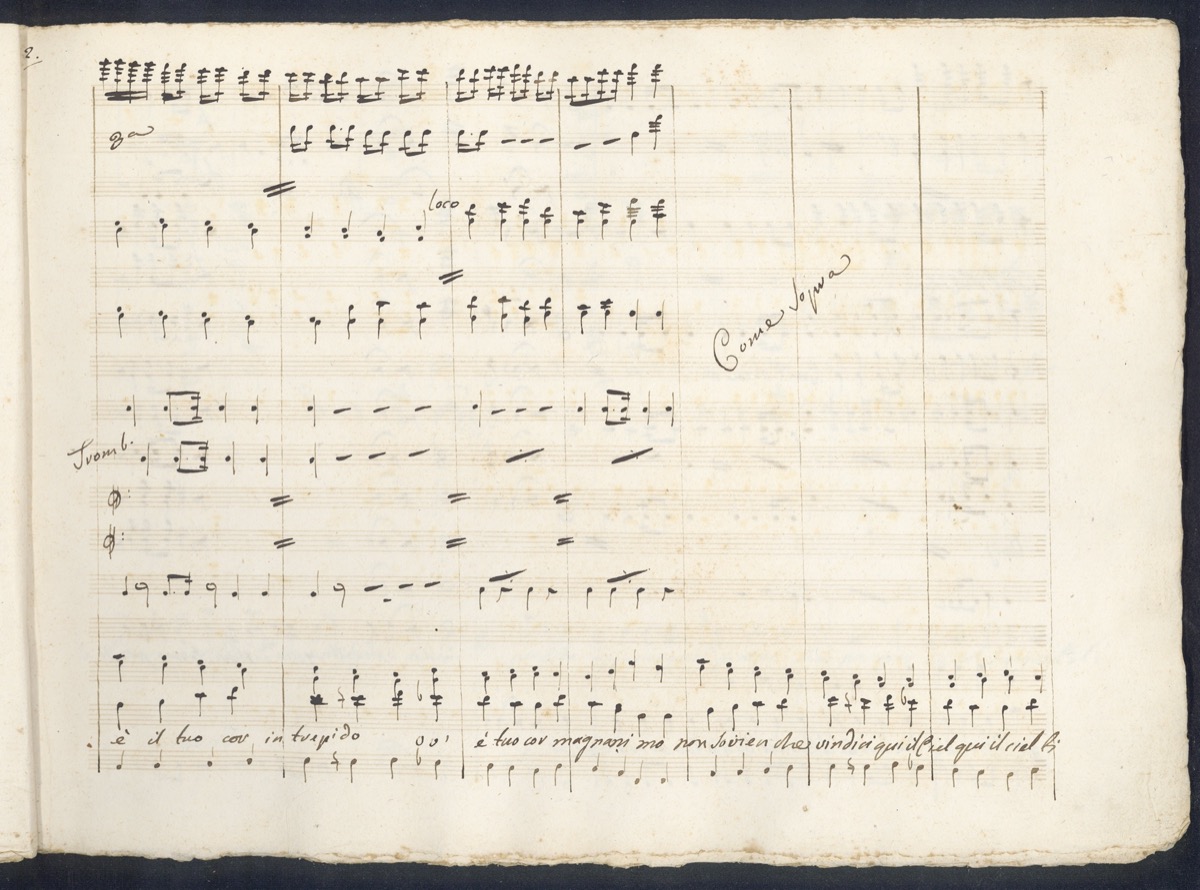 2.
8a
loco
Come Sopra
Tromb.
è il tuo cor intrepido ov' é tuo cor magnanimo non Sovien che vindici qui il Ciel qui il ciel ti